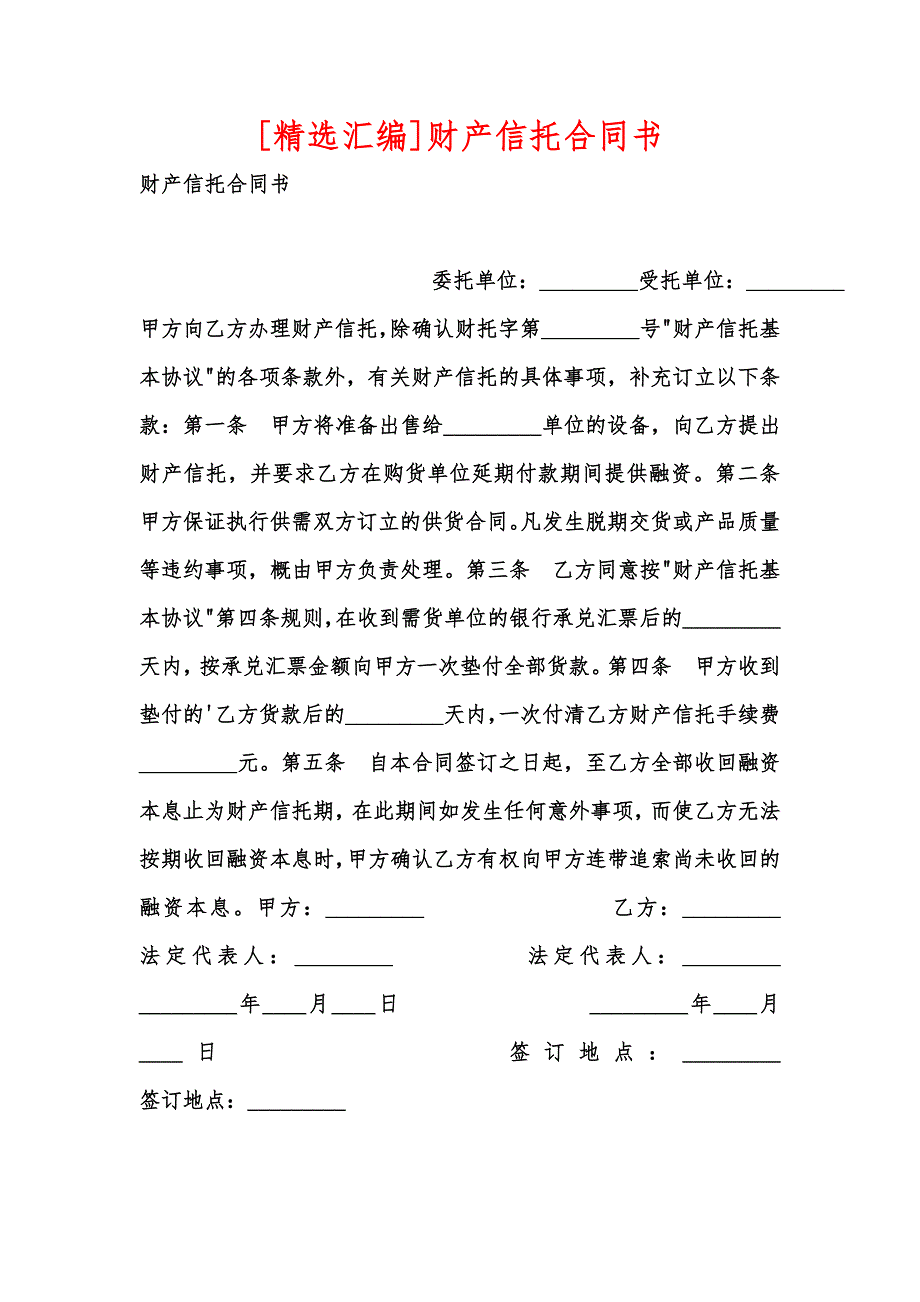 [精选汇编]财产信托合同书
财产信托合同书
委托单位：_________受托单位：_________
甲方向乙方办理财产信托,除确认财托字第_________号"财产信托基
本协议"的各项条款外，有关财产信托的具体事项，补充订立以下条
款：第一条　甲方将准备出售给_________单位的设备，向乙方提出
财产信托，并要求乙方在购货单位延期付款期间提供融资。第二条
甲方保证执行供需双方订立的供货合同。凡发生脱期交货或产品质量
等违约事项，概由甲方负责处理。第三条　乙方同意按"财产信托基
本协议"第四条规则,在收到需货单位的银行承兑汇票后的_________
天内,按承兑汇票金额向甲方一次垫付全部货款。第四条　甲方收到
垫付的'乙方货款后的_________天内,一次付清乙方财产信托手续费
_________元。第五条　自本合同签订之日起，至乙方全部收回融资
本息止为财产信托期，在此期间如发生任何意外事项，而使乙方无法
按期收回融资本息时,甲方确认乙方有权向甲方连带追索尚未收回的
融资本息。甲方：_________　乙方：_________
法定代表人：_________　法定代表人：_________
_________年____月____日　_________年____月
____日　签订地点：_________
签订地点：_________